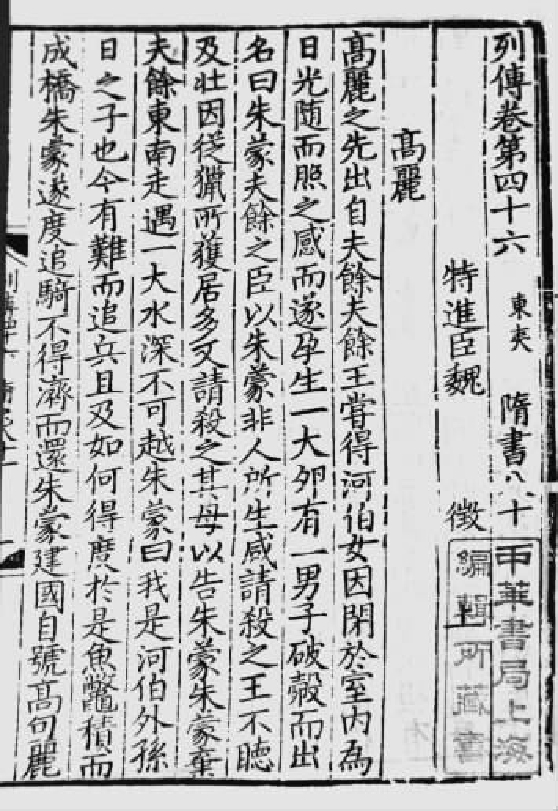 列傳卷第四十六 東夷 隋書八十一
特進臣魏 徵
高麗
高麗之先出自夫餘夫餘王嘗得河伯女因閉於室内為
日光随而照之感而遂孕生一大卵有一男子破殼而出
名曰朱蒙夫餘之臣以朱蒙非人所生咸請殺之王不聽
及壮因從獵所獲居多又請殺之其母以告朱蒙朱蒙棄
夫餘東南走遇一大水深不可越朱蒙曰我是河伯外孫
日之子也今有難而追兵且及如何得度於是魚鼈積而
成橋朱蒙遂度追騎不得濟而還朱蒙建國自號高句麗
中華書局上海
編輯所藏書